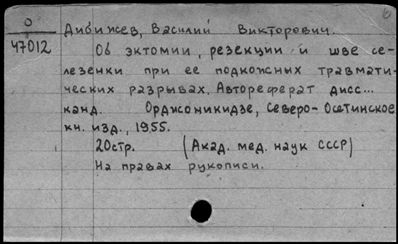 О
47012
Дибижев, Василий Викторович.
Об эктомии, резекции и шве се-
лезенки при ее подкожных травмати-
ческих разрывах. Автореферат дисс...
канд. Орджоникидзе, Северо-Осетинское
кн. изд., 1955.
20стр. (Акад. мед. наук СССР)
На правах рукописи.